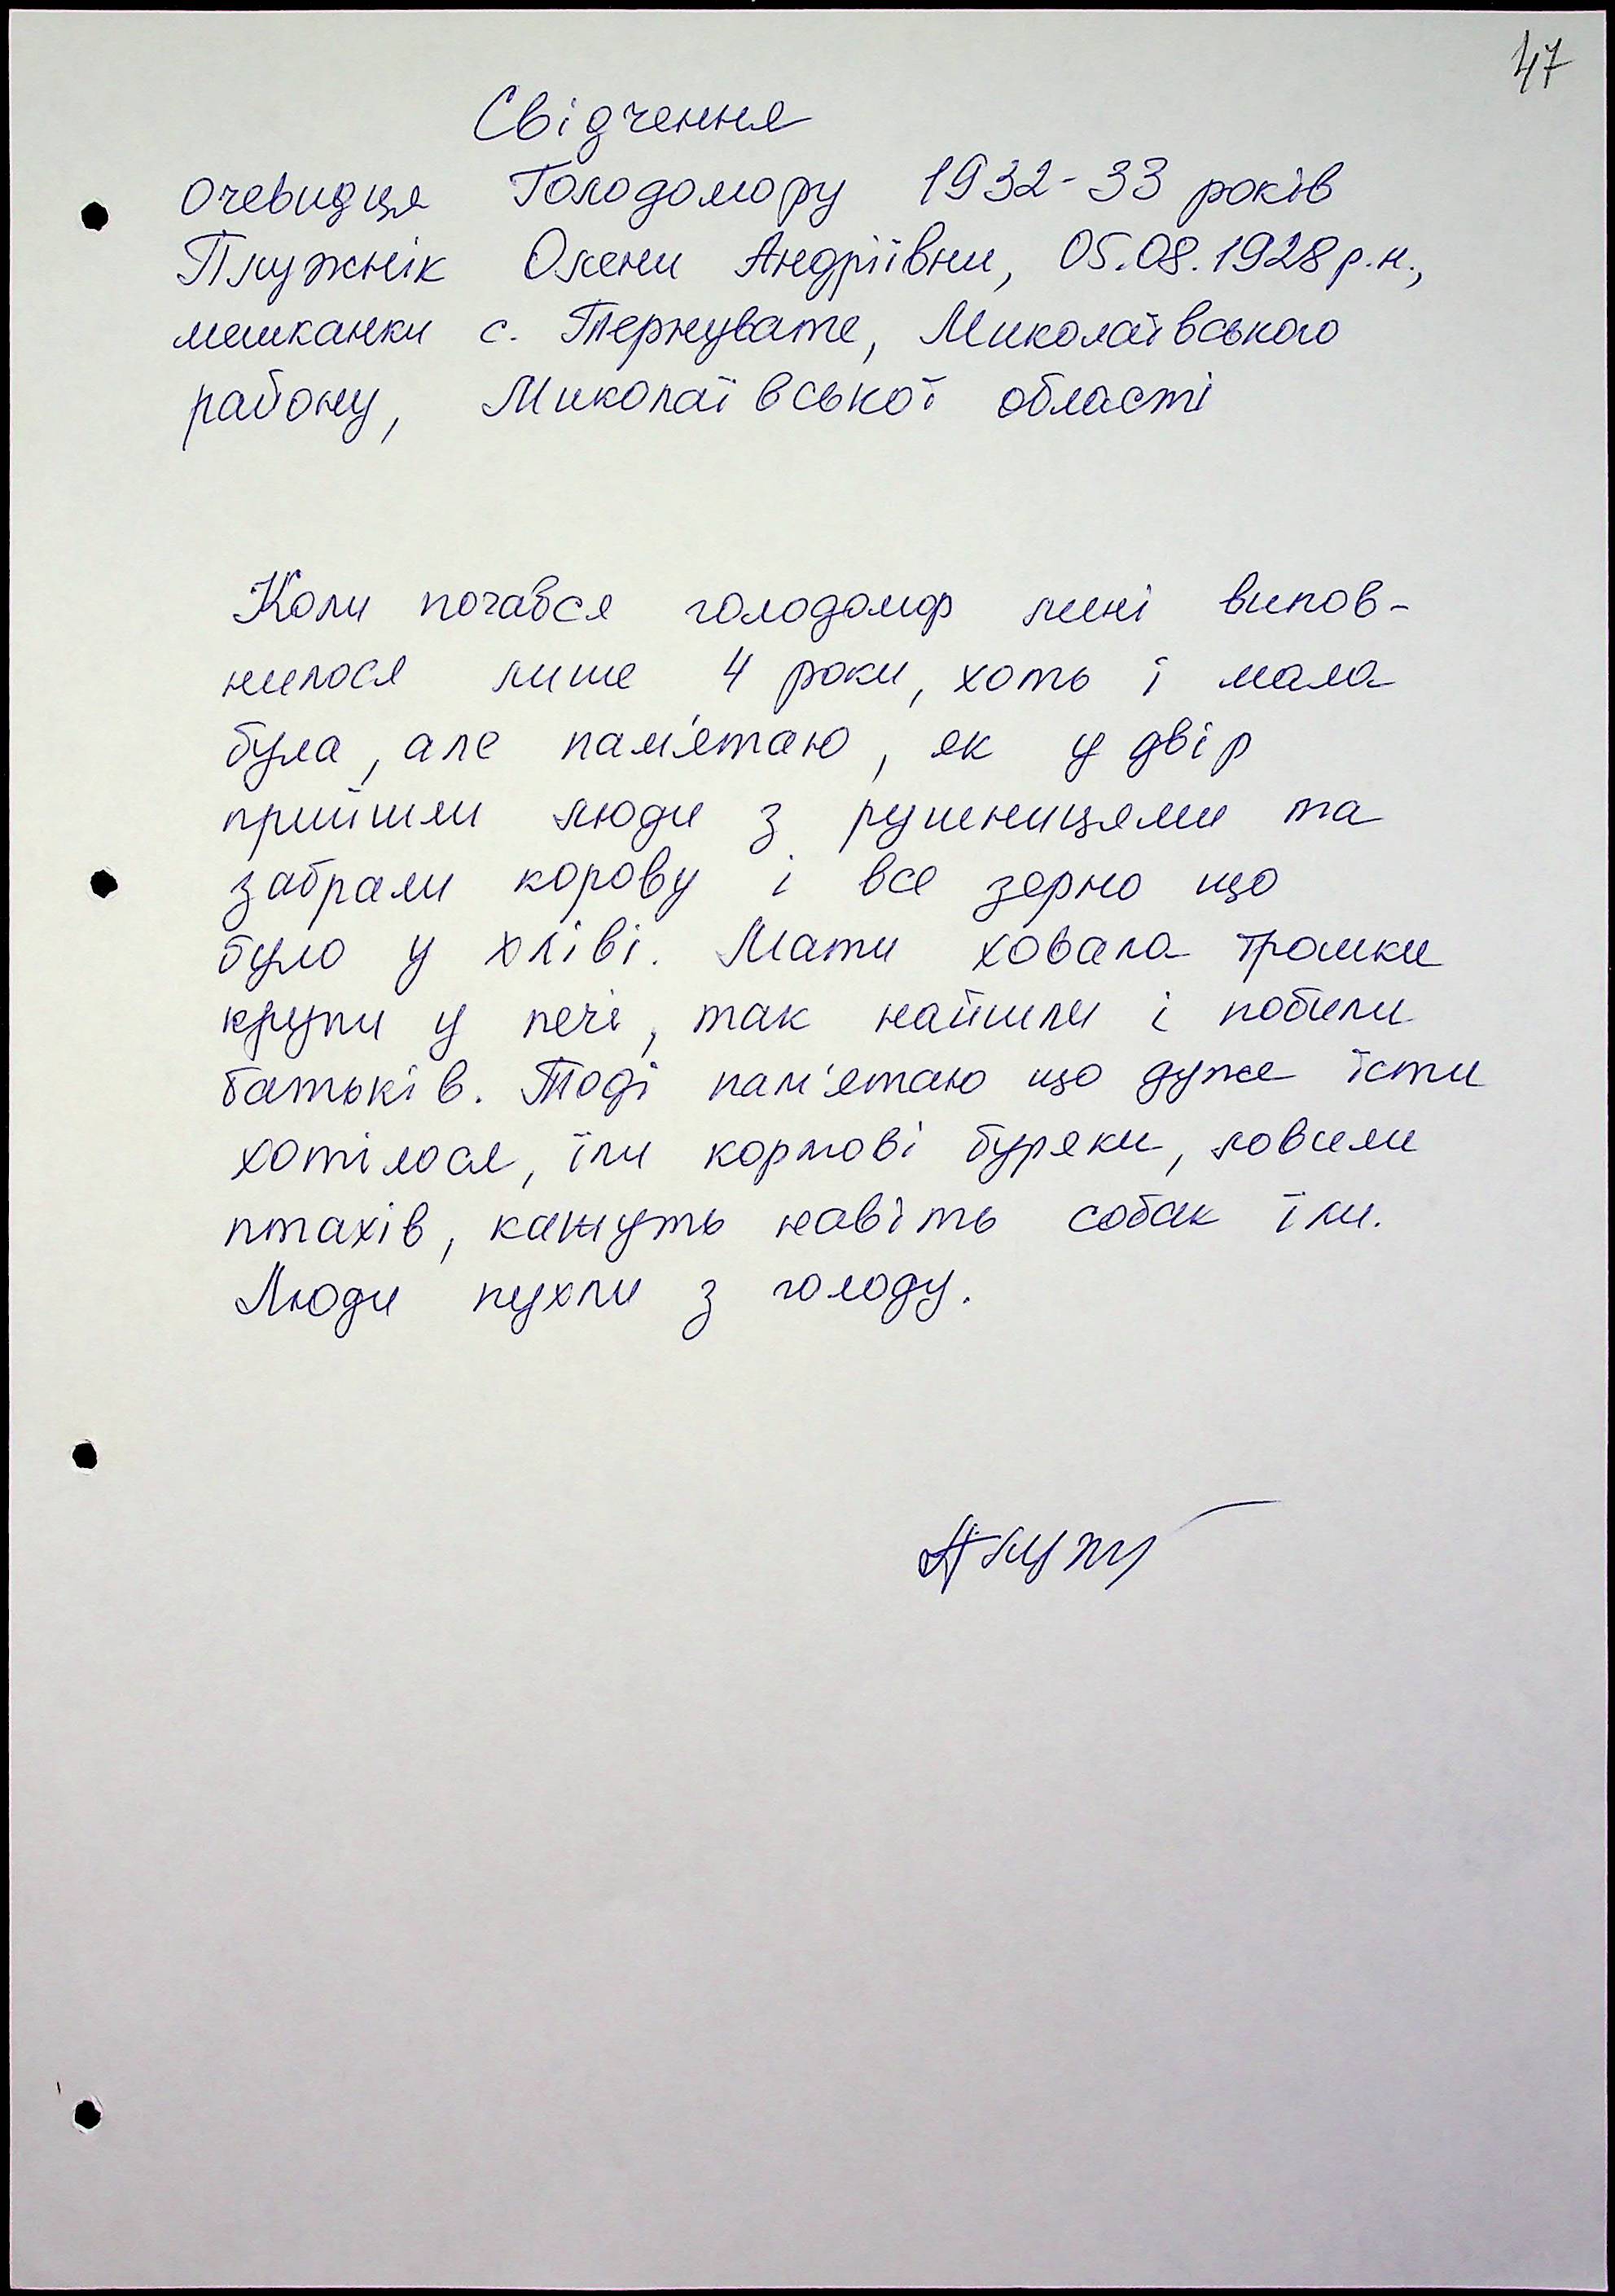 47
Свідчення
очевидця Голодомору 1932-33 років
Плужнік Олени Андріївни, 05.08.1928 р.н.,
мешканки с. Тернувате, Миколаївського
району, Миколаївської області
Коли почався голодомор мені випов-
нилося лише 4 роки, хоть і мала
була, але пам'ятаю, як у двір
прийшли люди з рушницями та
забрали корову і все зерно що
було у хліві. Мати ховала трошки
крупи у печі, так найшли і побили
батьків. Тоді пам'ятаю що дуже їсти
хотілося, їли кормові буряки, ловили
птахів, кажуть навіть собак їли.
Люди пухли з голоду.